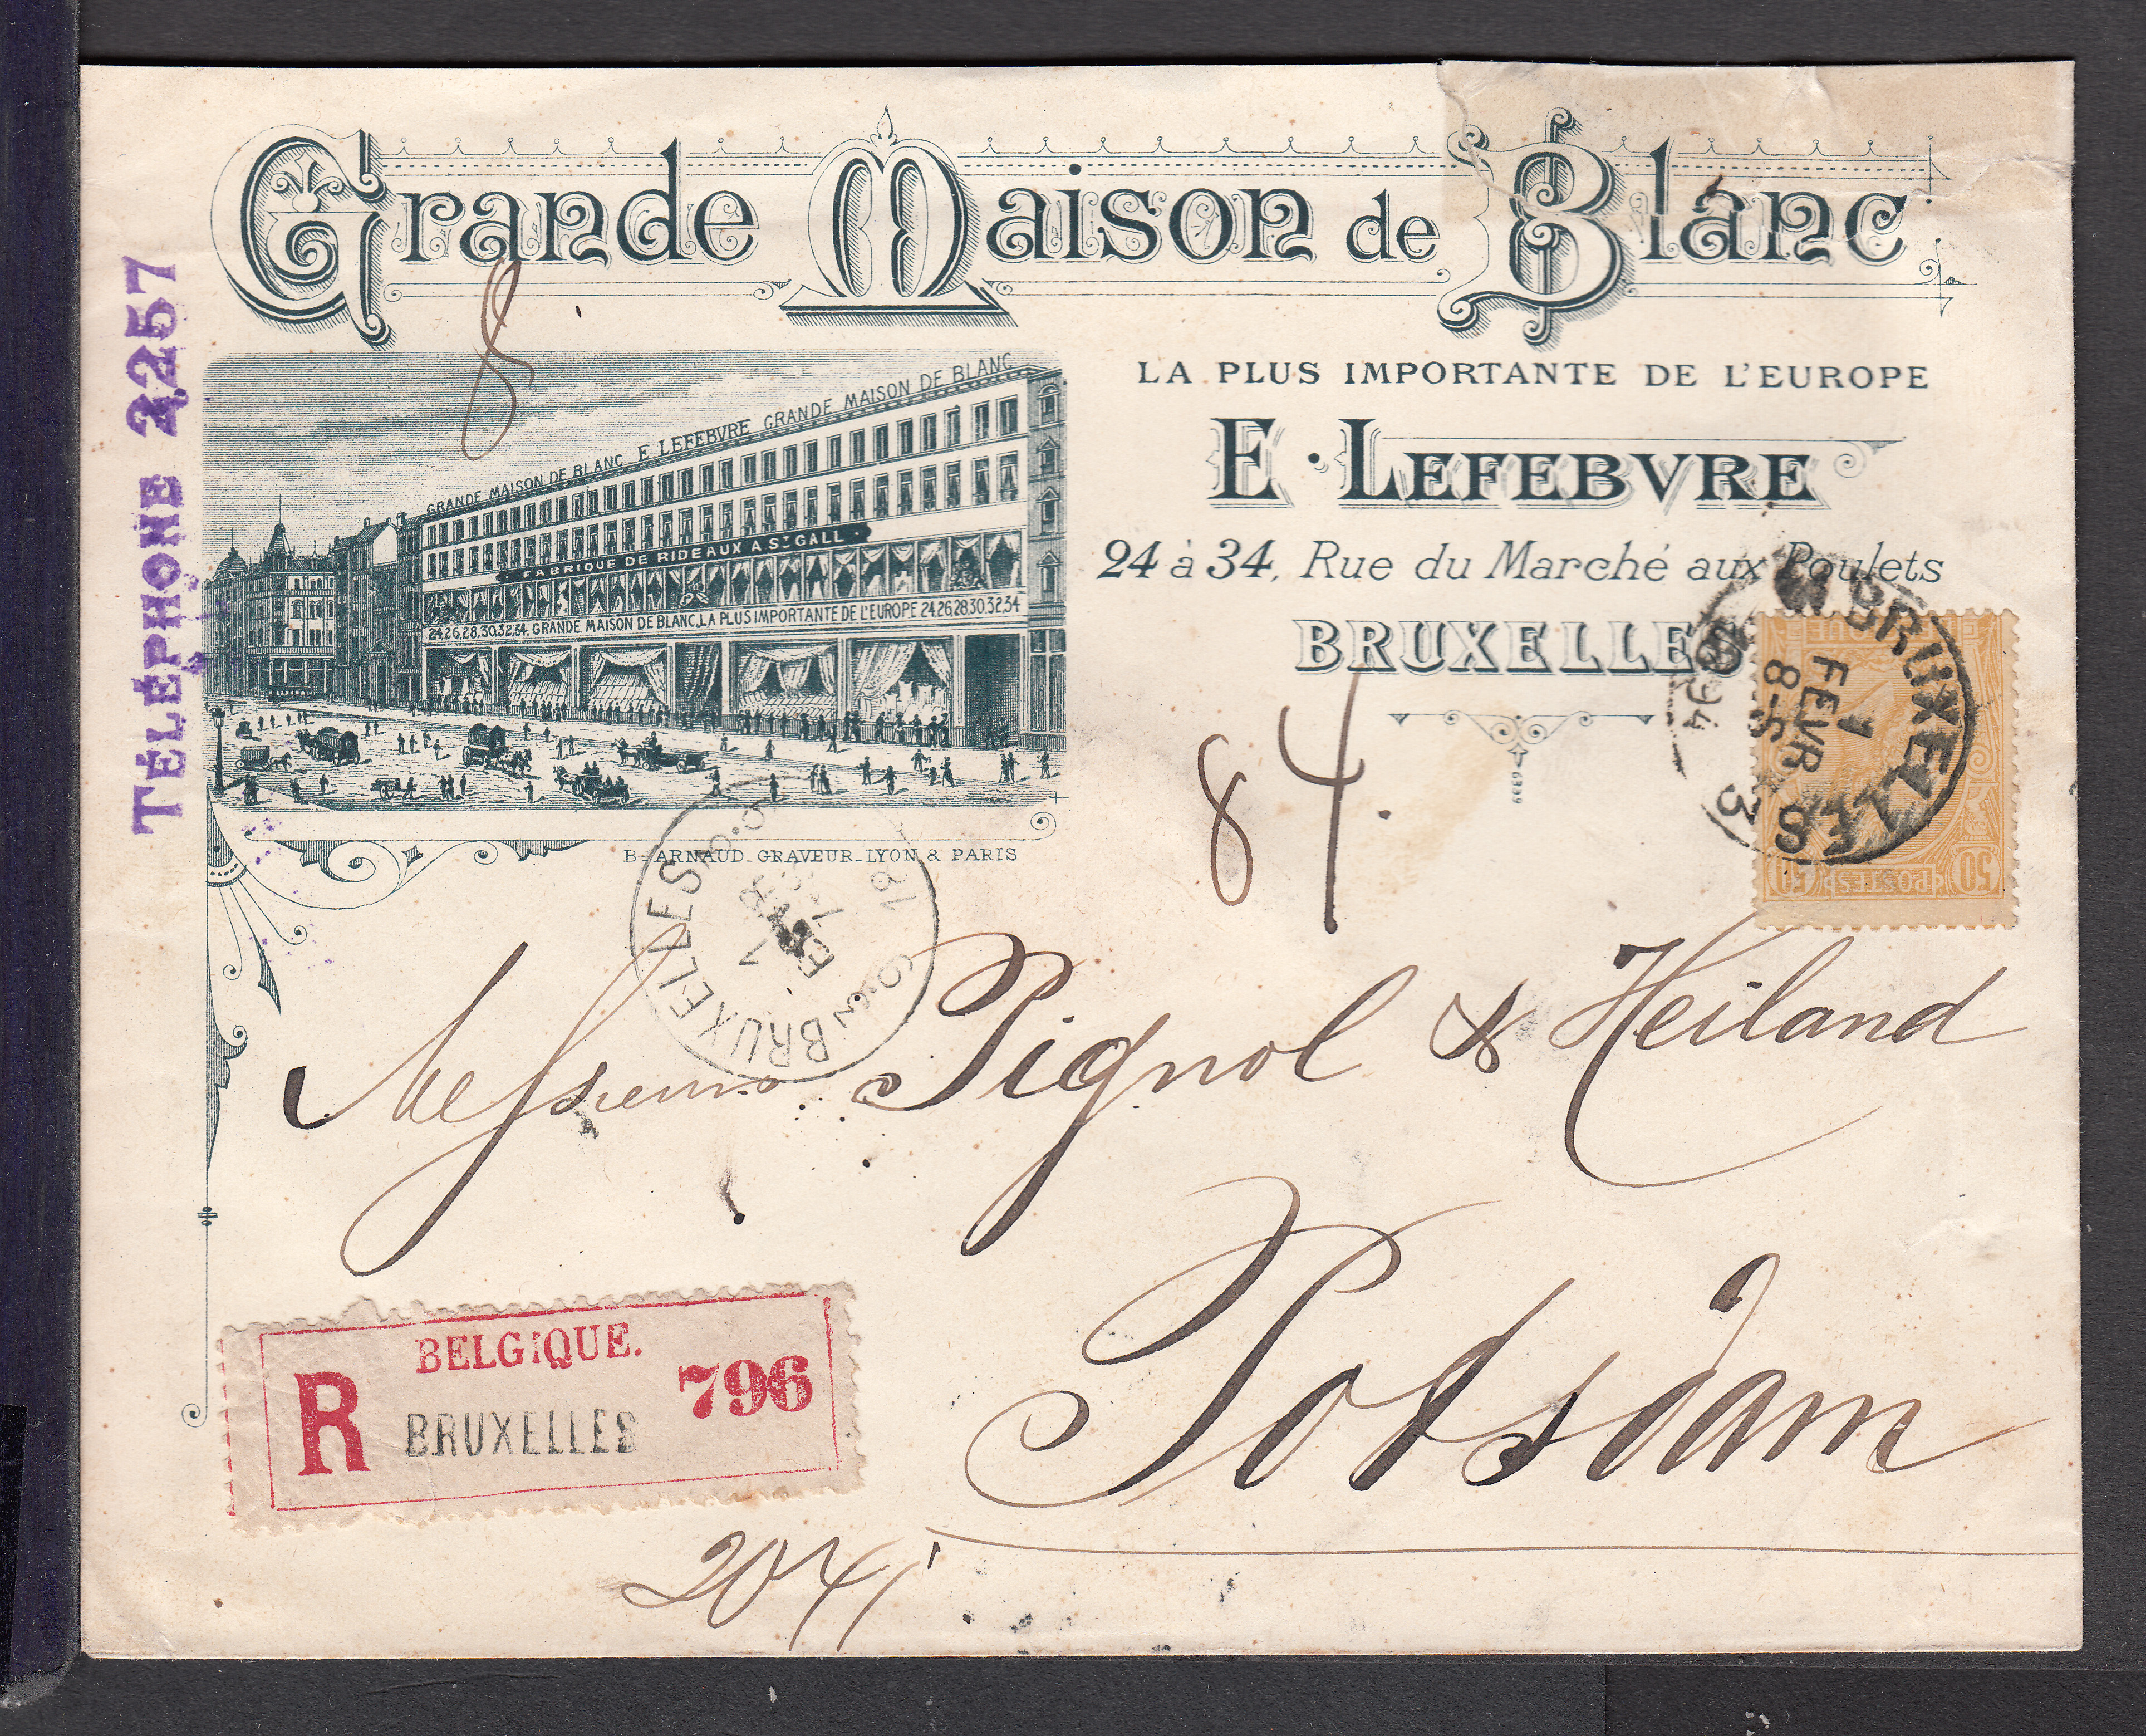 Grande Maison de Blanc
TÉLÉPHONE 2257
8
LA PLUS IMPORTANTE DE L'EUROPE
E. LEFEBVRE
24 à 34, Rue du Marché aux Poulets
BRUXELLES
GRANDE MAISON DE BLANC E LEFEBVRE GRANDE MAISON DE BLANC
FABRIQUE DE RIDEAUX A ST GALL
24.26.28.30.32.34. GRANDE MAISON DE BLANC, LA PLUS IMPORTANTE DE L'EUROPE 24.26.28.30.32.34
B. ARNAUD_GRAVEUR_LYON & PARIS
BRUXELLES
8-S
1
FEVR
3
POSTES
50
84.
6399
BRUXELLES
BRUX
Messieurs Pignol & Heiland
Potsdam
BELGIQUE.
R
BRUXELLES
796